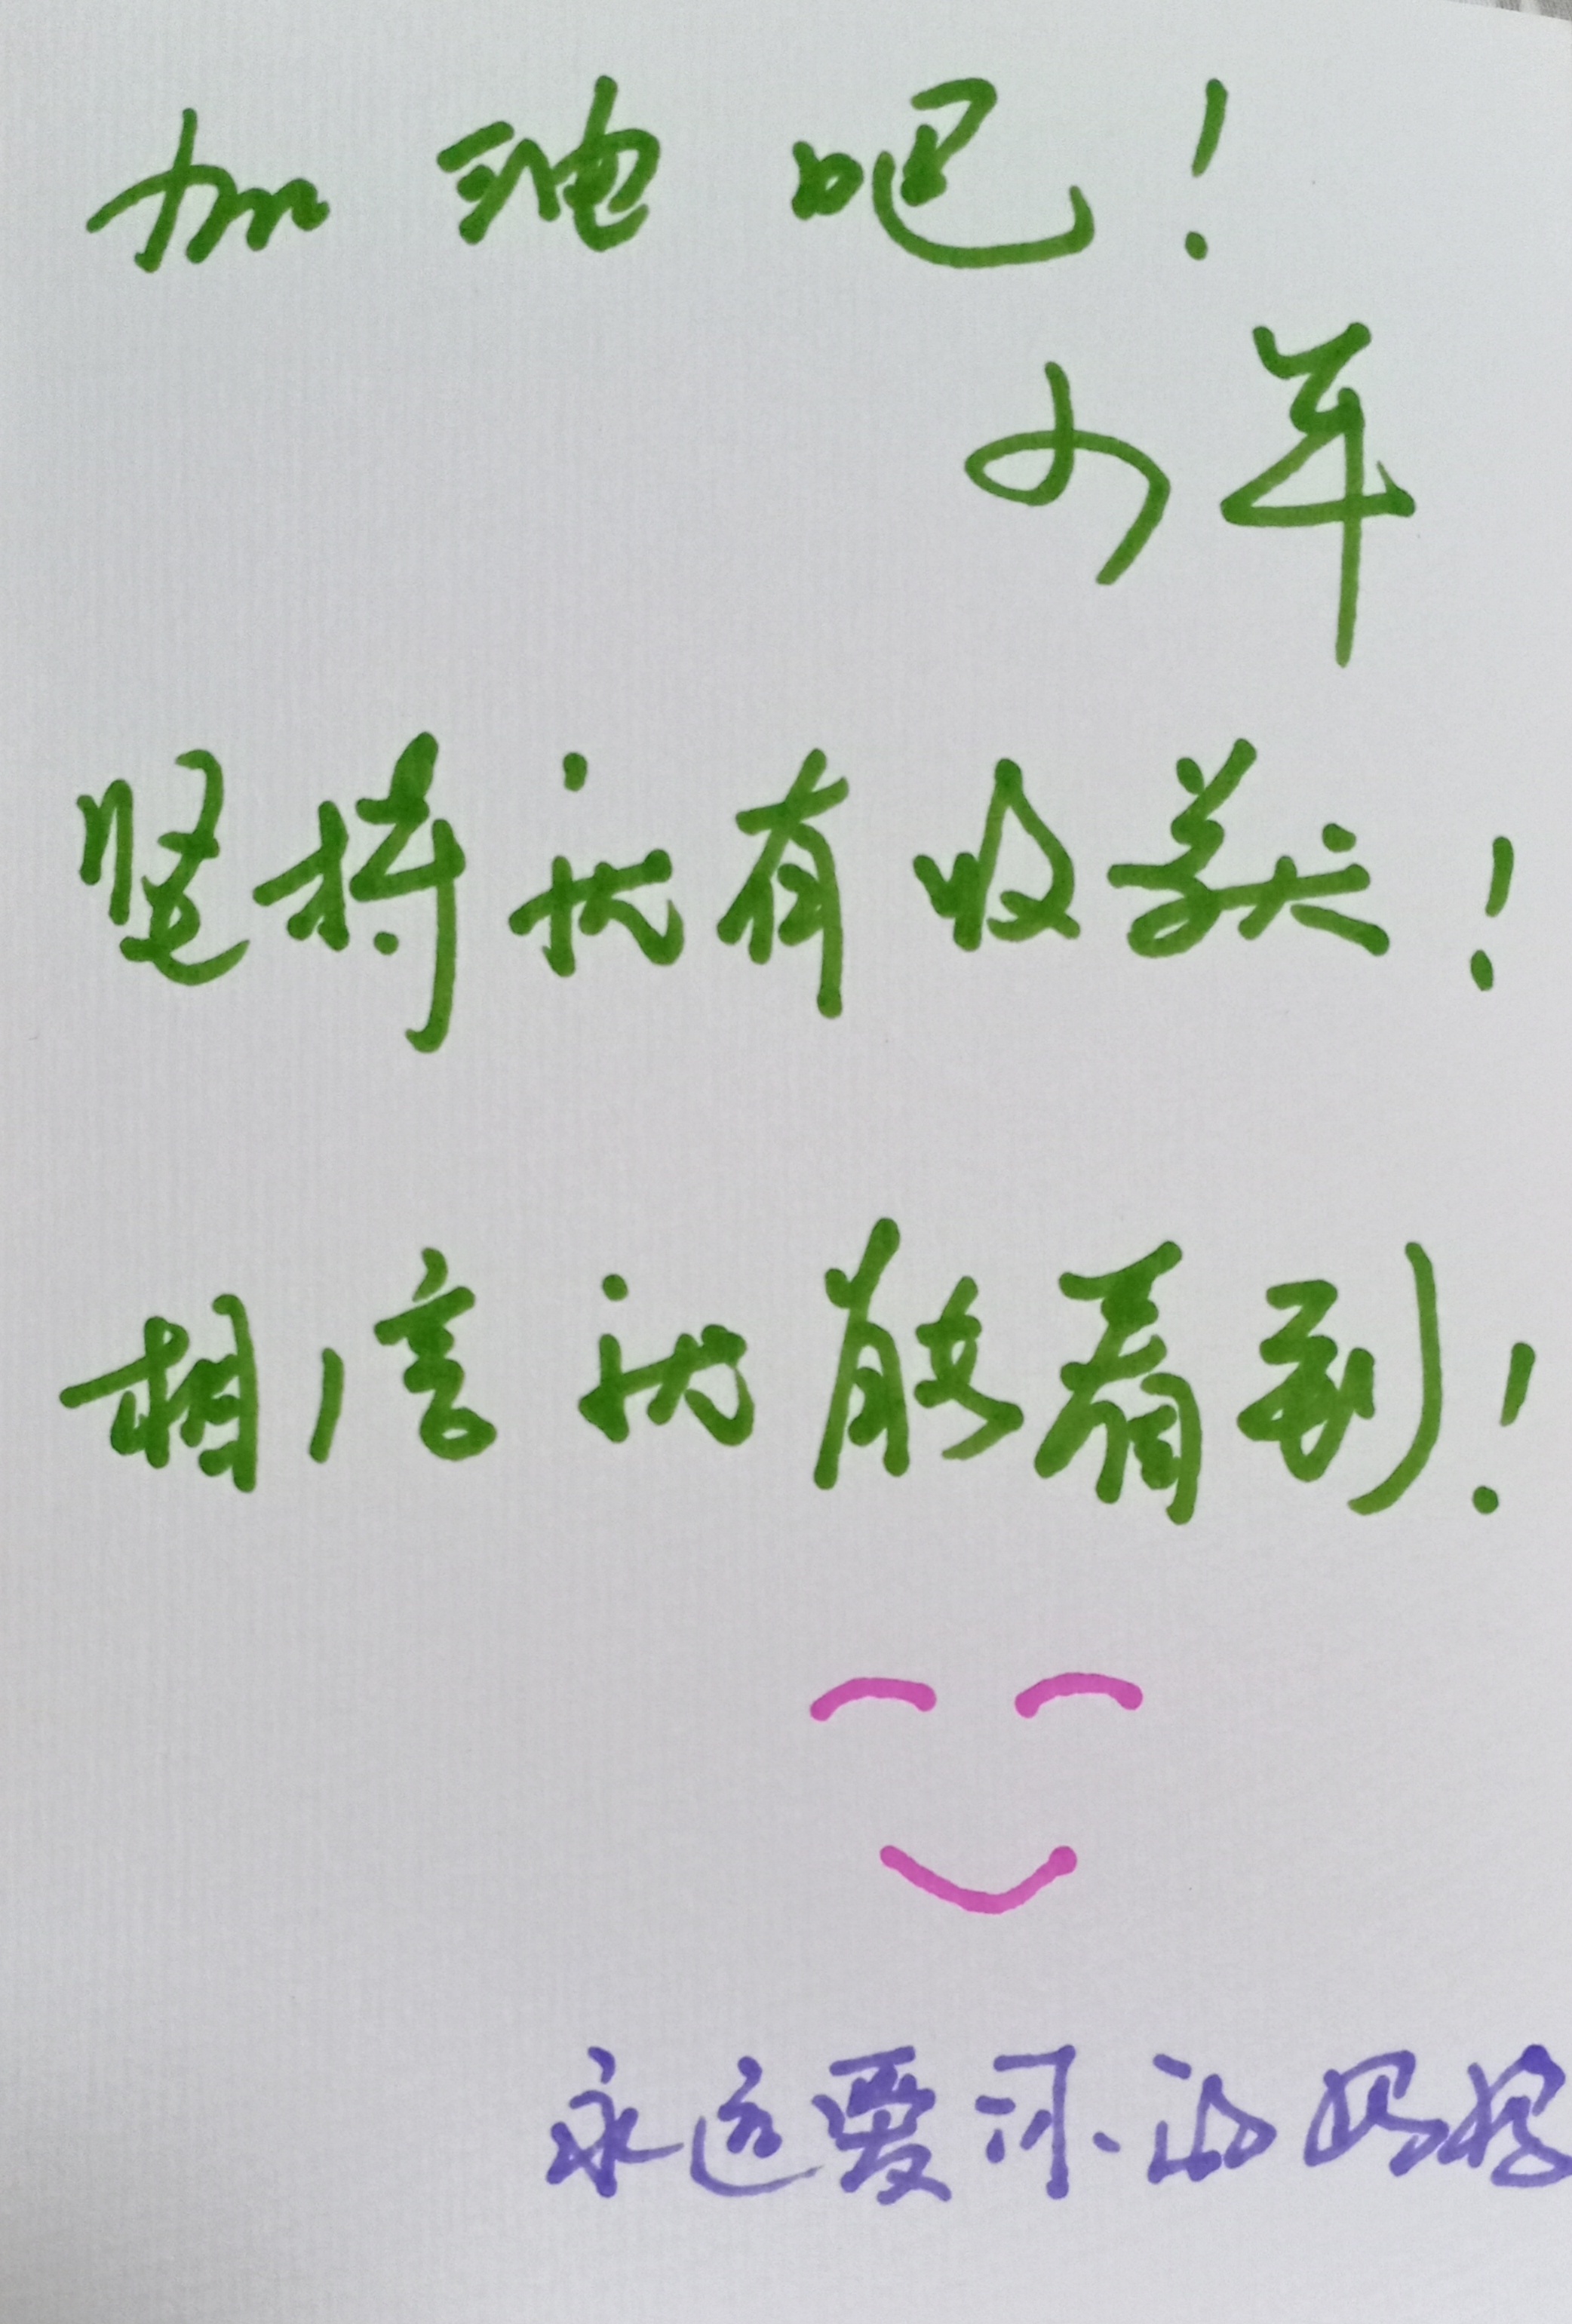 加油吧！
少年
坚持就有收获！
相信就能看到！
永远爱你的妈妈